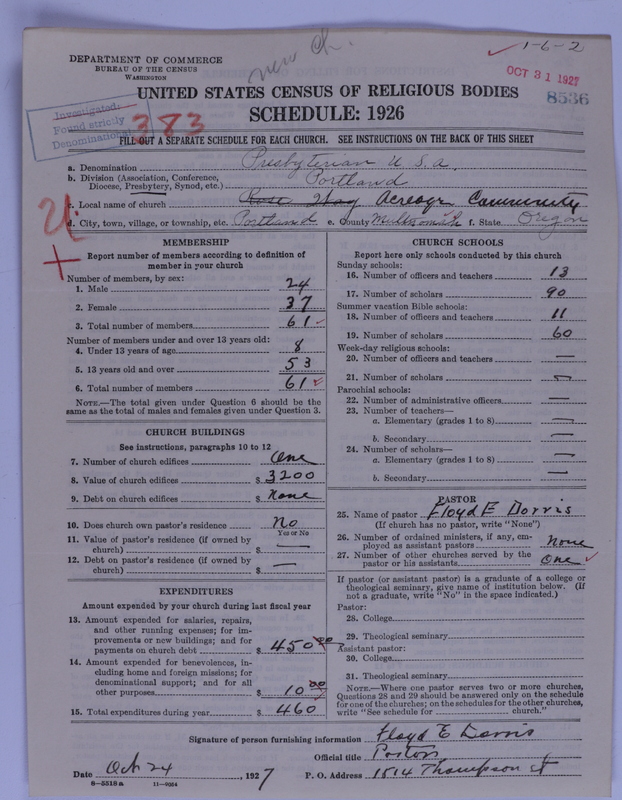 new ch.
1-6-2
DEPARTMENT OF COMMERCE
BUREAU OF THE CENSUS
WASHINGTON
OCT 31 1927
8536
UNITED STATES CENSUS OF RELIGIOUS BODIES
SCHEDULE: 1926
Investigated:
Found strictly
Denominational
383
FILL OUT A SEPARATE SCHEDULE FOR EACH CHURCH. SEE INSTRUCTIONS ON THE BACK OF THIS SHEET
a. Denomination Presbyterian U.S.a.
b. Division (Association, Conference, Diocese, Presbytery, Synod, etc.) Portland
c. Local name of church Rose Way Acreage Community
d. City, town, village, or township, etc. Portland e. County Multnomah f. State Oregon
MEMBERSHIP
Report number of members according to definition of
member in your church
Number of members, by sex:
1. Male 24
2. Female 37
3. Total number of members 61
Number of members under and over 13 years old:
4. Under 13 years of age 8
5. 13 years old and over 53
6. Total number of members 61
NOTE.—The total given under Question 6 should be
same as the total of males and females given under Question 3.
CHURCH BUILDINGS
See instructions, paragraphs 10 to 12
7. Number of church edifices One
8. Value of church edifices $ 3200
9. Debt on church edifices $ None
10. Does church own pastor's residence No
Yes or No
11. Value of pastor's residence (if owned by
church) $ —
12. Debt on pastor's residence (if owned by
church) $ —
EXPENDITURES
Amount expended by your church during last fiscal year
13. Amount expended for salaries, repairs,
and other running expenses; for im-
provements or new buildings; and for
payments on church debt $ 450 00
14. Amount expended for benevolences, in-
cluding home and foreign missions; for
denominational support; and for all
other purposes $ 10 00
15. Total expenditures during year $ 460
CHURCH SCHOOLS
Report here only schools conducted by this church
Sunday schools:
16. Number of officers and teachers 13
17. Number of scholars 90
Summer vacation Bible schools:
18. Number of officers and teachers 11
19. Number of scholars 60
Week-day religious schools:
20. Number of officers and teachers —
21. Number of scholars —
Parochial schools:
22. Number of administrative officers —
23. Number of teachers—
a. Elementary (grades 1 to 8) —
b. Secondary —
24. Number of scholars—
a. Elementary (grades 1 to 8) —
b. Secondary —
PASTOR
25. Name of pastor Floyd E Dorris
(If church has no pastor, write "None")
26. Number of ordained ministers, if any, em-
ployed as assistant pastors None
27. Number of other churches served by the
pastor or his assistants One
If pastor (or assistant pastor) is a graduate of a college or
theological seminary, give name of institution below. (If
not a graduate, write "No" in the space indicated.)
Pastor:
28. College
29. Theological seminary
Assistant pastor:
30. College
31. Theological seminary
NOTE.—Where one pastor serves two or more churches,
Questions 28 and 29 should be answered only on the schedule
for one of the churches; on the schedules for the other churches,
write "See schedule for church."
Signature of person furnishing information Floyd E Dorris
Official title Pastor
Date Oct 24, 1927 P. O. Address 1514 Thompson St
8-5518a 11-9094